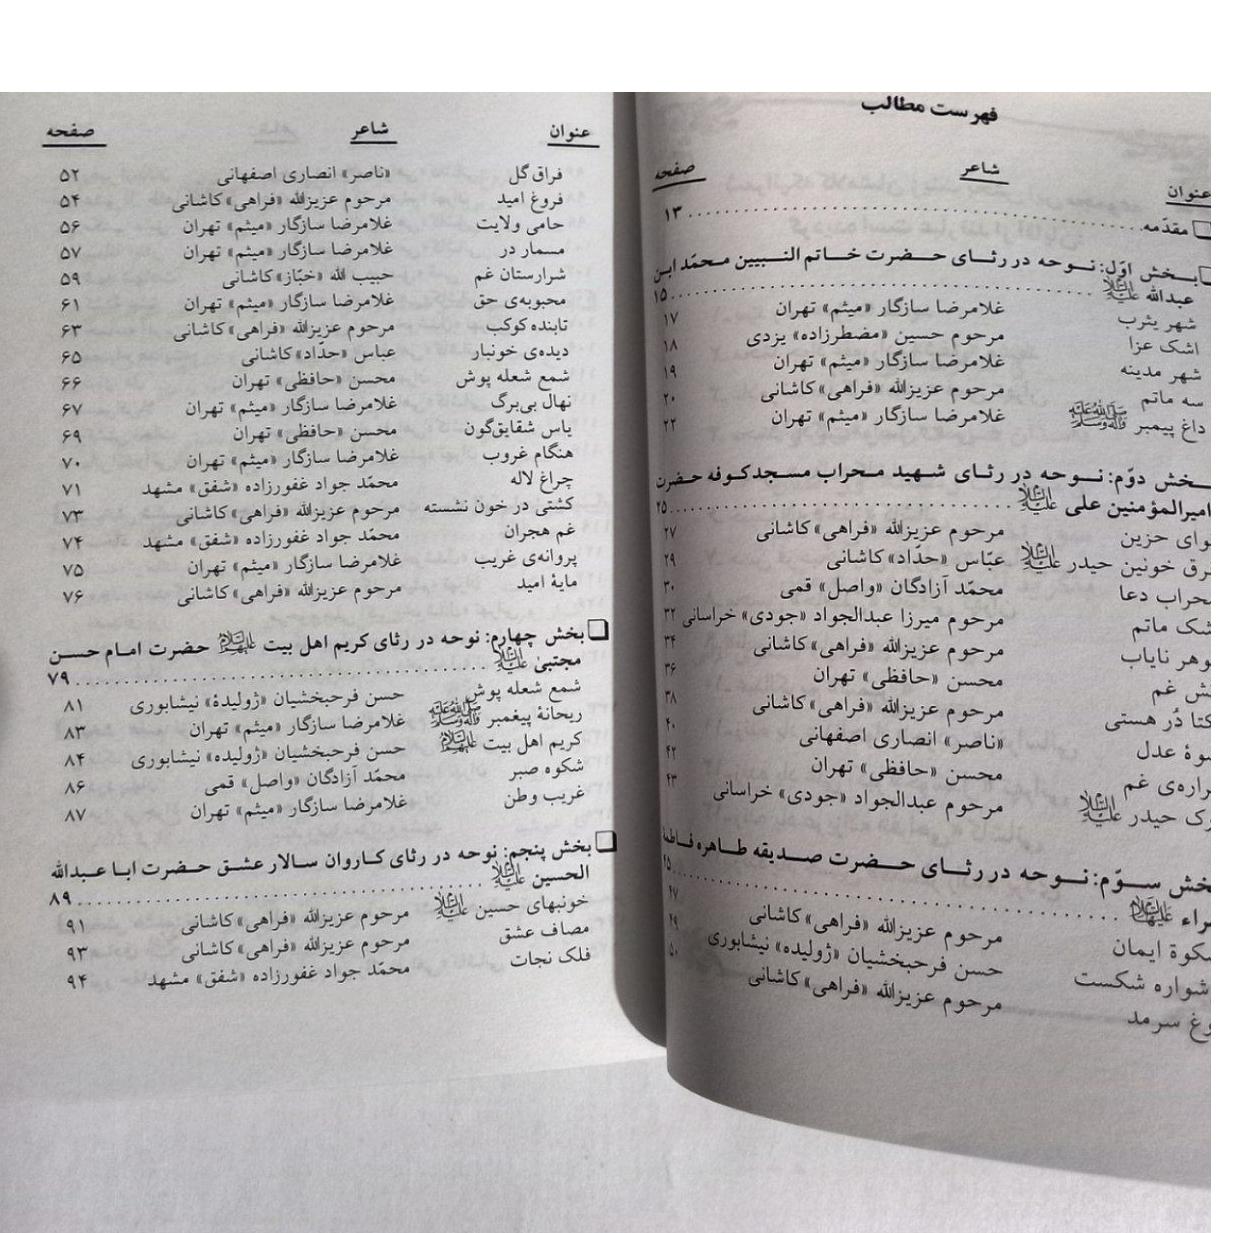 فهرست مطالب
عنوان شاعر صفحه
مقدّمه ........ ۱۳
بخش اوّل: نوحه در رثای حضرت خاتم النبیین محمّد ابن
عبدالله علیه‌السلام ........ ۱۵
شهر یثرب غلامرضا سازگار «میثم» تهران ۱۷
اشک عزا مرحوم حسین «مضطرزاده» یزدی ۱۸
شهر مدینه غلامرضا سازگار «میثم» تهران ۱۹
سه ماتم مرحوم عزیزالله «فراهی» کاشانی ۲۰
داغ پیمبر صلی‌الله‌علیه‌وآله‌وسلم غلامرضا سازگار «میثم» تهران ۲۲
بخش دوّم: نوحه در رثای شهید محراب مسجد کوفه حضرت
امیرالمؤمنین علی علیه‌السلام ........ ۲۵
وای حزین مرحوم عزیزالله «فراهی» کاشانی ۲۷
رق خونین حیدر علیه‌السلام عبّاس «حدّاد» کاشانی ۲۹
حراب دعا محمّد آزادگان «واصل» قمی ۳۰
شک ماتم مرحوم میرزا عبدالجواد «جودی» خراسانی ۳۲
وهر نایاب مرحوم عزیزالله «فراهی» کاشانی ۳۴
ش غم محسن «حافظی» تهران ۳۶
کتا دُر هستی مرحوم عزیزالله «فراهی» کاشانی ۳۸
وۀ عدل «ناصر» انصاری اصفهانی ۴۰
راره‌ی غم محسن «حافظی» تهران ۴۲
رک حیدر علیه‌السلام مرحوم عبدالجواد «جودی» خراسانی ۴۳
بخش سوّم: نوحه در رثای حضرت صدیقه طاهره فاطمه
راء علیهاالسلام ........ ۴۵
کوة ایمان مرحوم عزیزالله «فراهی» کاشانی ۴۷
شواره شکست حسن فرحبخشیان «ژولیده» نیشابوری ۴۹
وغ سرمد مرحوم عزیزالله «فراهی» کاشانی ۵۰
عنوان شاعر صفحه
فراق گل «ناصر» انصاری اصفهانی ۵۲
فروغ امید مرحوم عزیزالله «فراهی» کاشانی ۵۴
حامی ولایت غلامرضا سازگار «میثم» تهران ۵۶
مسمار در غلامرضا سازگار «میثم» تهران ۵۷
شرارستان غم حبیب الله «خبّاز» کاشانی ۵۹
محبوبه‌ی حق غلامرضا سازگار «میثم» تهران ۶۱
تابنده کوکب مرحوم عزیزالله «فراهی» کاشانی ۶۳
دیده‌ی خونبار عباس «حدّاد» کاشانی ۶۵
شمع شعله پوش محسن «حافظی» تهران ۶۶
نهال بی‌برگ غلامرضا سازگار «میثم» تهران ۶۷
یاس شقایق‌گون محسن «حافظی» تهران ۶۹
هنگام غروب غلامرضا سازگار «میثم» تهران ۷۰
چراغ لاله محمّد جواد غفورزاده «شفق» مشهد ۷۱
کشتی در خون نشسته مرحوم عزیزالله «فراهی» کاشانی ۷۳
غم هجران محمّد جواد غفورزاده «شفق» مشهد ۷۴
پروانه‌ی غریب غلامرضا سازگار «میثم» تهران ۷۵
مایۀ امید مرحوم عزیزالله «فراهی» کاشانی ۷۶
بخش چهارم: نوحه در رثای کریم اهل بیت علیهم‌السلام حضرت امام حسن
مجتبیٰ علیه‌السلام ........ ۷۹
شمع شعله پوش حسن فرحبخشیان «ژولیدۀ» نیشابوری ۸۱
ریحانۀ پیغمبر صلی‌الله‌علیه‌وآله‌وسلم غلامرضا سازگار «میثم» تهران ۸۳
کریم اهل بیت علیهم‌السلام حسن فرحبخشیان «ژولیده» نیشابوری ۸۴
شکوه صبر محمّد آزادگان «واصل» قمی ۸۶
غریب وطن غلامرضا سازگار «میثم» تهران ۸۷
بخش پنجم: نوحه در رثای کاروان سالار عشق حضرت ابا عبدالله
الحسین علیه‌السلام ........ ۸۹
خونبهای حسین علیه‌السلام مرحوم عزیزالله «فراهی» کاشانی ۹۱
مصاف عشق مرحوم عزیزالله «فراهی» کاشانی ۹۳
فلک نجات محمّد جواد غفورزاده «شفق» مشهد ۹۴